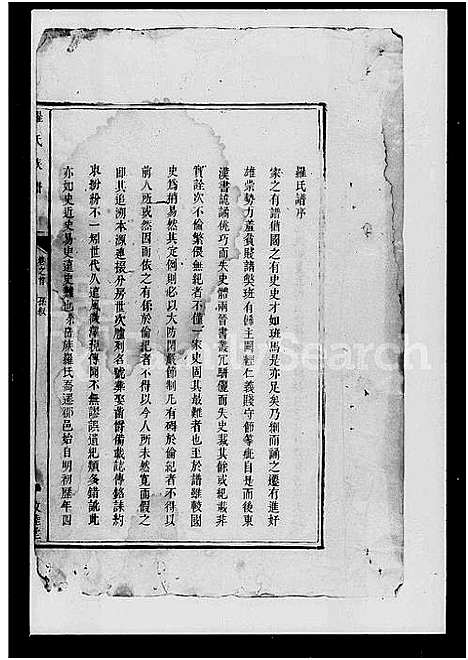 羅氏譜序
家之有譜猶國之有史史才如班馬是亦足矣乃刻而誦之遷有進奸
雄崇勢力羞貧賤諸獘班有 主圖經仁義賤守節等疵自是而後東
漢書詭譎佻巧而失史體兩晉書叢冗駢儷而失史裁其餘或紀載非
實詮次不倫繁偎無紀者不僅一家史固其最難者也至於譜雖較國
史為稍易然其定例則必以大防閑嚴節制凡有碍於倫紀者不得以
前人所或然因而依之有係於倫紀者不得以今人所未然寛而假之
即其追溯本源連接分房世次臚列名號葬娶齒爵備載誌傳銘誄約
束紛紛不一刼世代久遠風微 視傳聞不無謬誤遺紀類多錯訛此
亦如史近史易史遠史難也 吾族羅氏吾遷鄒邑始自明初歷年四
羅氏族譜
卷之首
孫叙
敦
LifeSearch